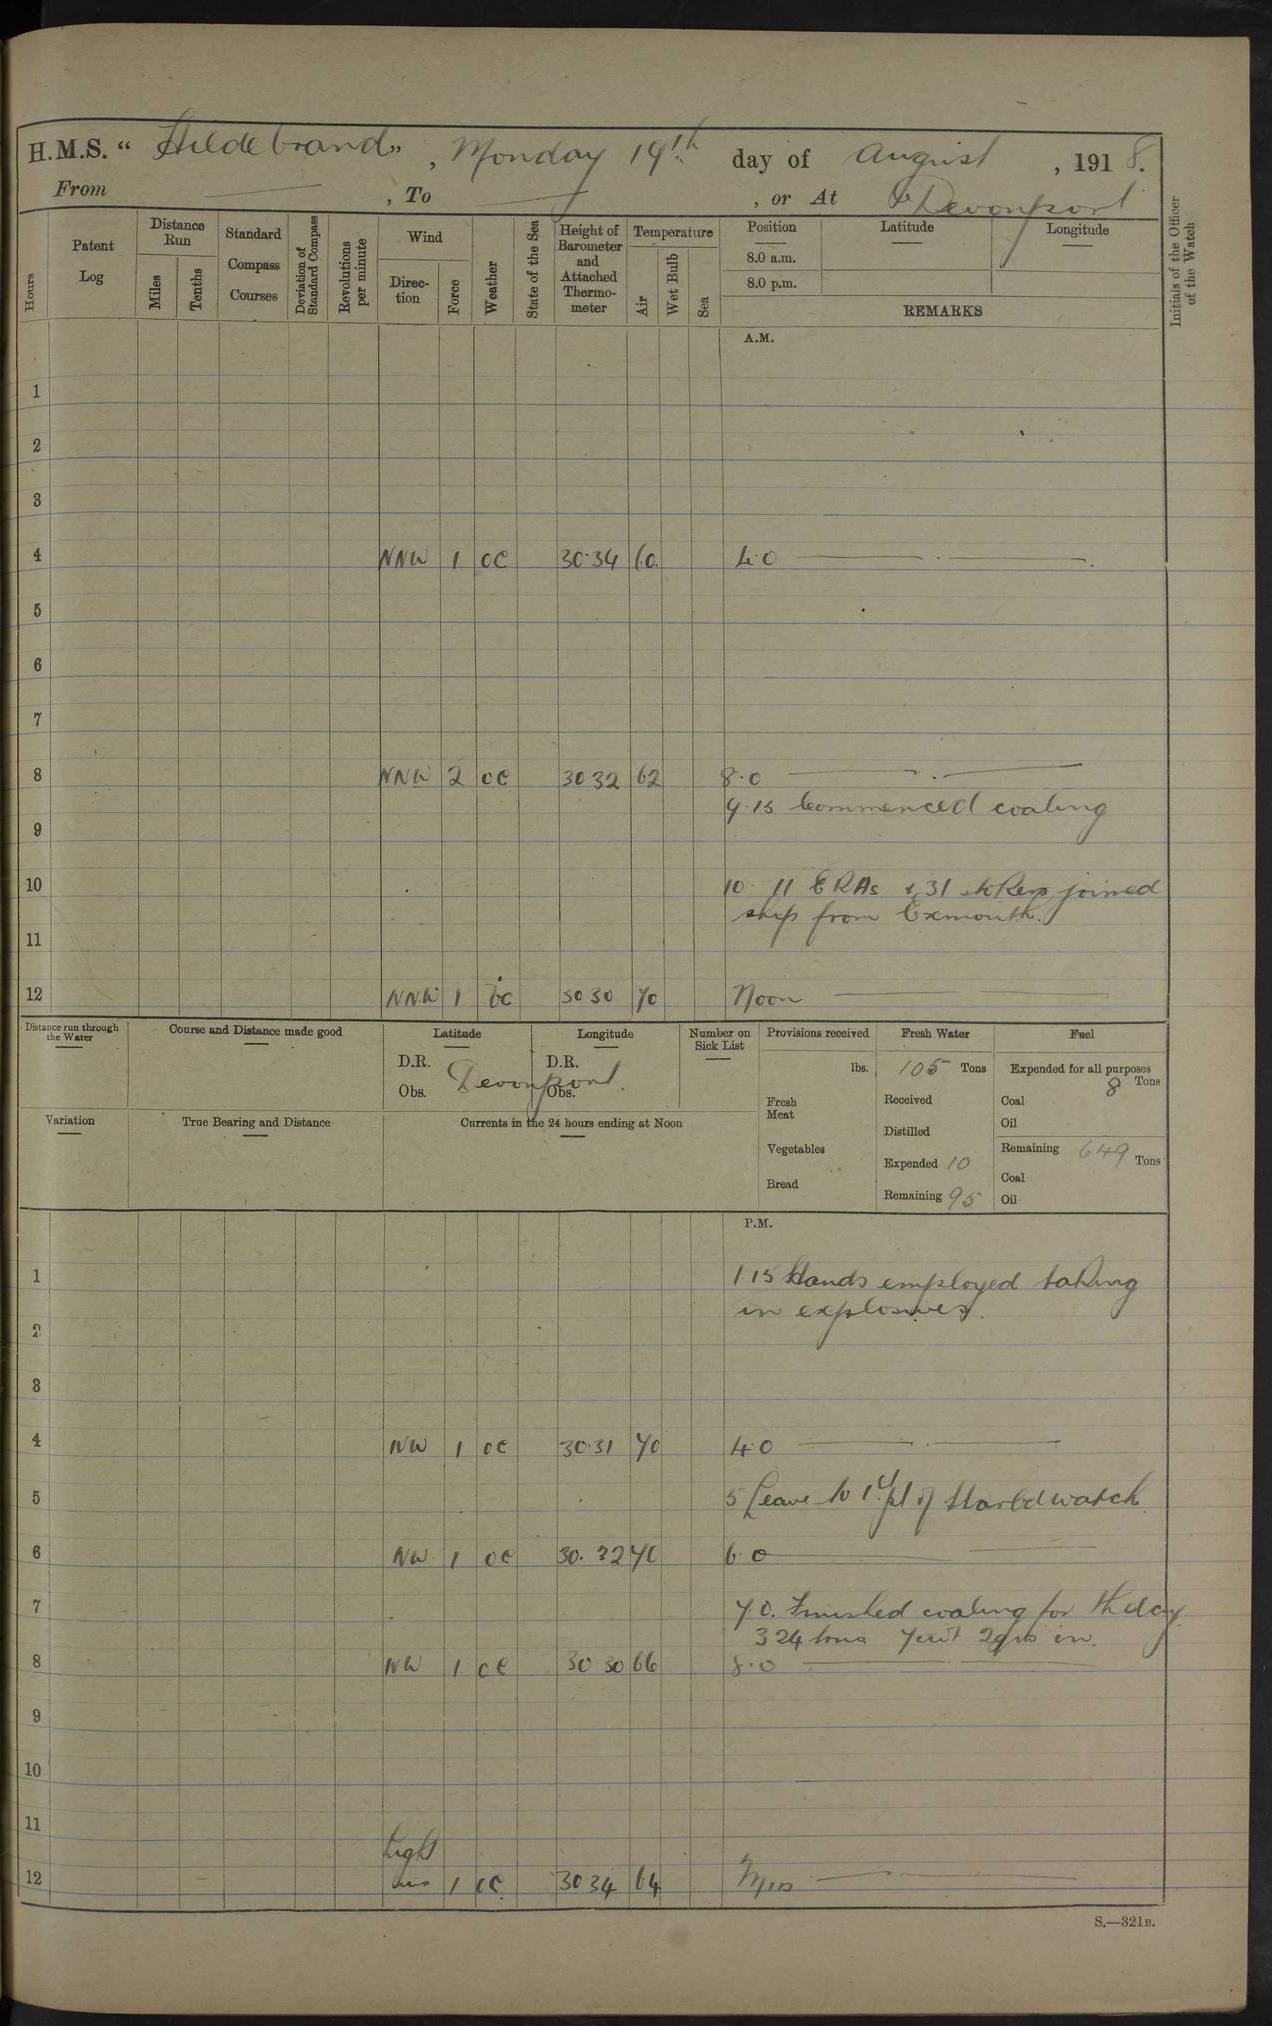 H.M.S. “ Hildebrand ”, Monday 19th day of August, 1918.
From — , To — , or At Devonport
Hours
Patent Log
Distance Run
Miles
Tenths
Standard Compass Courses
Deviation of Standard Compass
Revolutions per minute
Wind
Direction
Force
Weather
State of the Sea
Height of Barometer and Attached Thermometer
Temperature
Air
Wet Bulb
Sea
Position
8.0 a.m.
8.0 p.m.
Latitude
Longitude
REMARKS
Initials of the Officer of the Watch
A.M.
1
2
3
4 NNW 1 oc 30.34 60. 4.0 — . —
5
6
7
8 NNW 2 oc 30 32 62 8.0 — . —
9.15 Commenced coaling
9
10 10 11 ERAs & 31 stokers joined
ship from Exmouth.
11
12 NNW 1 bc 30 30 70 Noon —
Distance run through the Water
Course and Distance made good
Latitude
D.R.
Obs.
Longitude
D.R.
Obs.
Devonport.
Number on Sick List
Provisions received
lbs.
Fresh Meat
Vegetables
Bread
Fresh Water
105 Tons
Received
Distilled
Expended 10
Remaining 95
Fuel
Expended for all purposes
8 Tons
Coal
Oil
Remaining 649 Tons
Coal
Oil
Variation
True Bearing and Distance
Currents in the 24 hours ending at Noon
P.M.
1 1.15 Hands employed taking
in explosives.
2
3
4 NW 1 oc 30.31 70 4.0 — . —
5 5 Leave to 1st pt of Starbd watch
6 NW 1 oc 30.32 70 6.0 —
7 7.0. Finished coaling for the day.
324 tons 7cwt 2qrs in.
8 NW 1 oc 30 30 66 8.0 —
9
10
11
Light
12 airs 1 oc 30 34 64 Mid —
S.—321B.